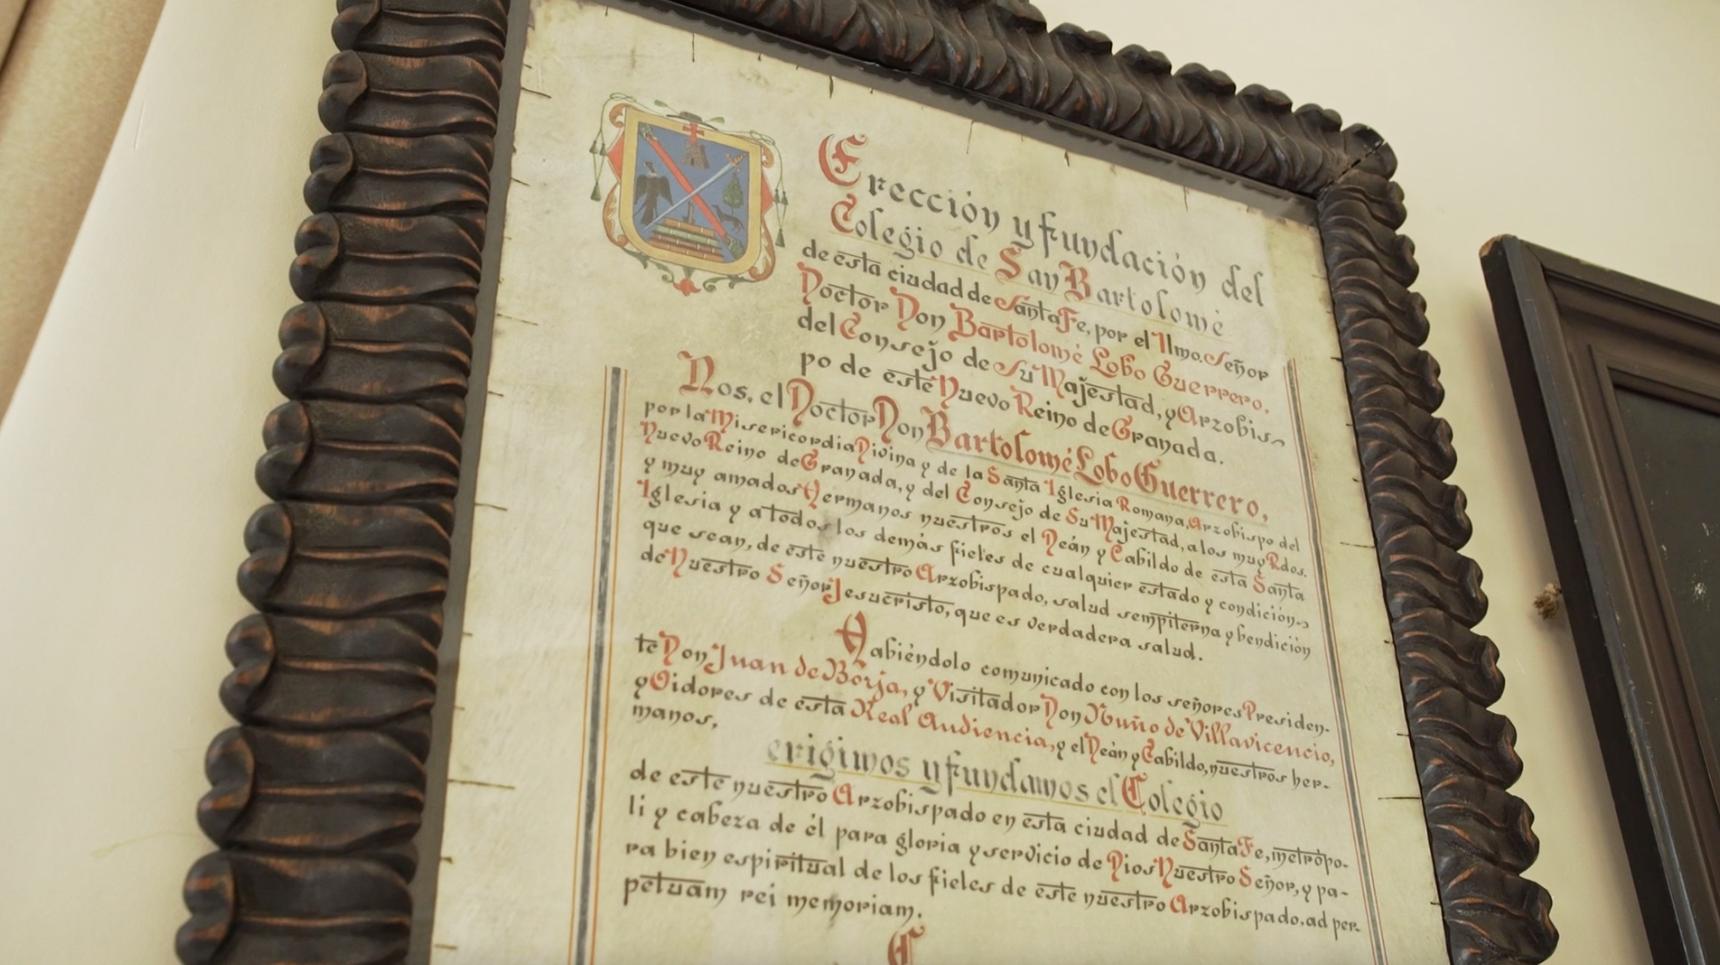 Erección y fundación del
Colegio de San Bartolomé
de esta ciudad de Santa Fe, por el Ilmo. Señor
Doctor Don Bartolomé Lobo Guerrero,
del Consejo de Su Majestad, y Arzobis-
po de este Nuevo Reino de Granada.
Nos, el Doctor Don Bartolomé Lobo Guerrero,
por la Misericordia Divina y de la Santa Iglesia Romana, Arzobispo del
Nuevo Reino de Granada, y del Consejo de Su Majestad, a los muy Rdos.
y muy amados Hermanos nuestros el Deán y Cabildo de esta Santa
Iglesia y a todos los demás fieles de cualquier estado y condición
que sean, de este nuestro Arzobispado, salud sempiterna y bendición
de Nuestro Señor Jesucristo, que es verdadera salud.
Habiéndolo comunicado con los señores Presiden-
te Don Juan de Borja, y Visitador Don Nuño de Villavicencio,
y Oidores de esta Real Audiencia, y el Deán y Cabildo, nuestros her-
manos,
erigimos y fundamos el Colegio
de este nuestro Arzobispado en esta ciudad de Santa Fe, metrópo-
li y cabeza de él para gloria y servicio de Dios Nuestro Señor, y pa-
ra bien espiritual de los fieles de este nuestro Arzobispado. ad per-
petuam rei memoriam.